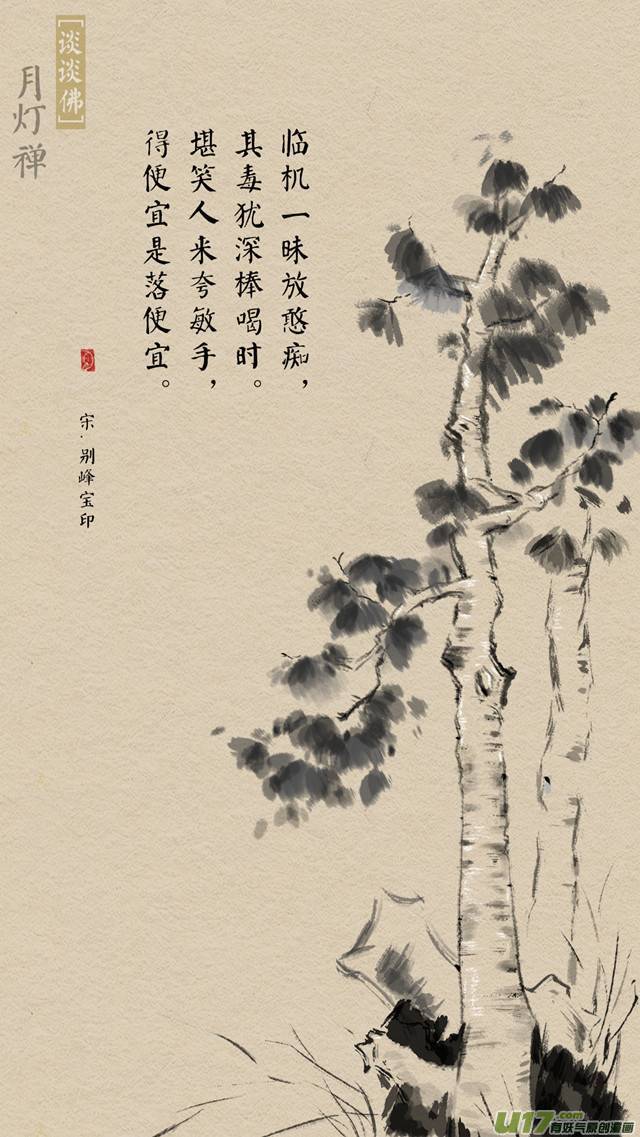 [谈谈佛]
月灯禅
临机一昧放憨痴，
其毒犹深棒喝时。
堪笑人来夸敏手，
得便宜是落便宜。
宋·别峰宝印
U17.com
有妖气原创漫画